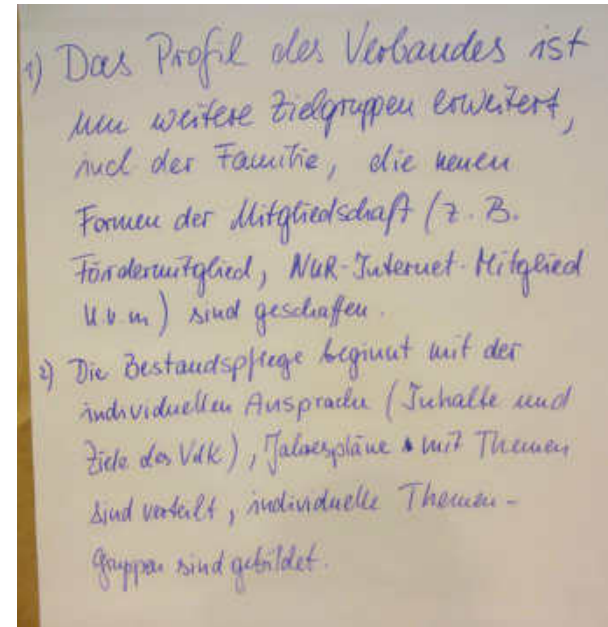 1) Das Profil des Verbandes ist
um weitere Zielgruppen erweitert,
incl. der Familie, die neuen
Formen der Mitgliedschaft (z. B.
Fördermitglied, NUR-Internet-Mitglied
u.v.m) sind geschaffen.
2) Die Bestandspflege beginnt mit der
individuellen Ansprache (Inhalte und
Ziele des VdK), Jahrespläne mit Themen
sind verteilt, individuelle Themen-
gruppen sind gebildet.